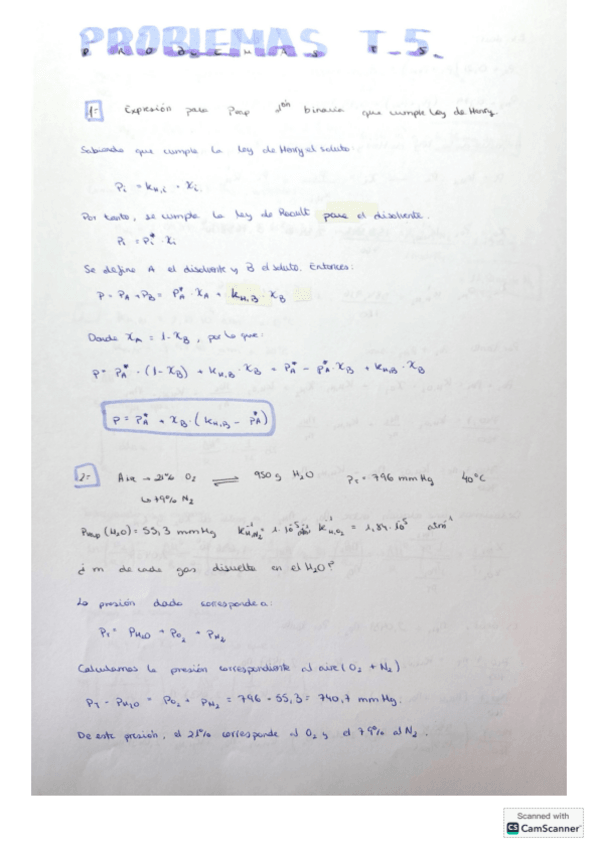 PROBLEMAS T.5.
PROBLEMAS T5
1= Expresión para Pvap dión binaria que cumple Ley de Henry.
Sabiendo que cumple la Ley de Henry el soluto:
Pi = kH,i · xi
Por tanto, se cumple la ley de Raoult para el disolvente.
Pi = Pi* · xi
Se define A el disolvente y B el soluto. Entonces:
P = PA + PB = PA* · xA + kH,B · xB
Donde xA = 1 - xB, por lo que:
P = PA* · (1 - xB) + kH,B · xB = PA* - PA* · xB + kH,B · xB
P = PA* + xB · (kH,B - PA*)
2= Aire → 21% O2 ⇌ 950 g H2O PT = 796 mmHg 40ºC
↳ 79% N2
Pvap (H2O) = 55,3 mmHg kH,N2⁻¹ = 1·10⁻⁵ atm⁻¹ kH,O2⁻¹ = 1,84·10⁻⁵ atm⁻¹
¿ m de cada gas disuelta en el H2O?
La presión dada corresponde a:
PT = PH2O + PO2 + PN2
Calculamos la presión correspondiente al aire (O2 + N2)
PT - PH2O = PO2 + PN2 = 796 - 55,3 = 740,7 mmHg.
De esta presión, el 21% corresponde al O2 y el 79% al N2.
Scanned with
CS CamScanner